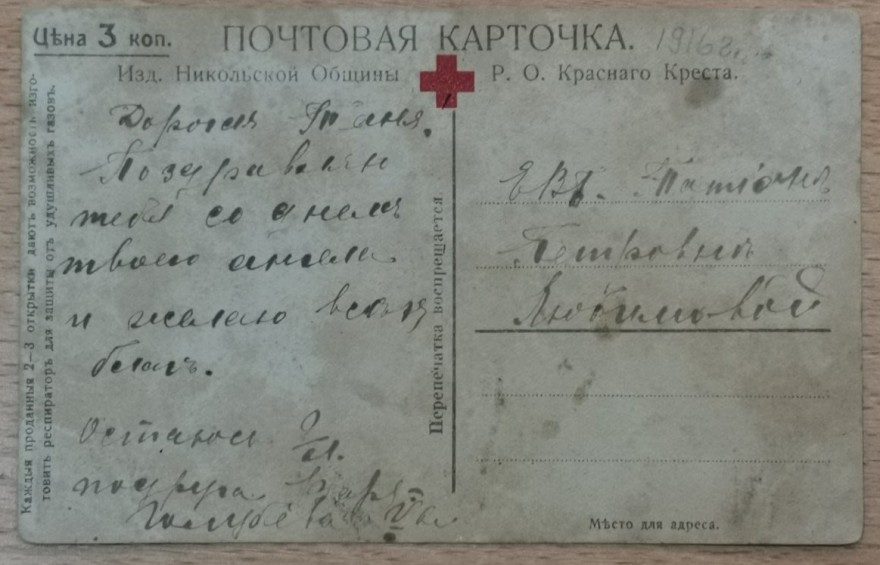 Цѣна 3 коп.
ПОЧТОВАЯ КАРТОЧКА.
1916 г.
Изд. Никольской Общины Р. О. Краснаго Креста.
Каждыя проданныя 2—3 открытки даютъ возможность изго-
товить респираторъ для защиты отъ удушливыхъ газовъ.
Дорогая Таня.
Поздравляю
тебя со днемъ
твоего ангела
и желаю всѣхъ
благъ.
Остаюсь
подруга Варя
Голубева V кл.
Перепечатка воспрещается
ЕВБ. Татіанѣ
Петровнѣ
Любимовой
Мѣсто для адреса.